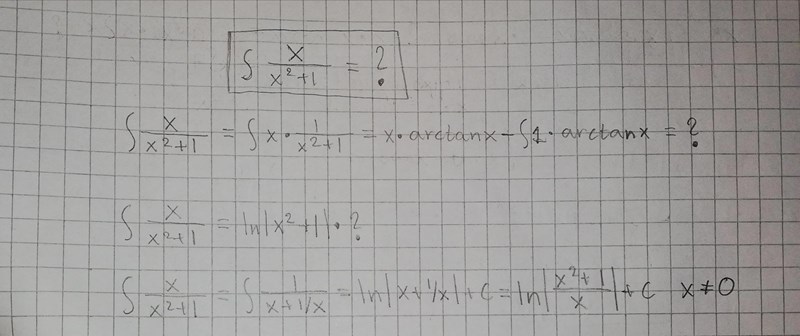 ∫ x/(x²+1) = ?
∫ x/(x²+1) = ∫ x · 1/(x²+1) = x · arctanx - ∫1 · arctanx = ?
∫ x/(x²+1) = ln|x²+1| · ?
∫ x/(x²+1) = ∫ 1/(x+1/x) = ln|x+1/x| + c = ln|(x²+1)/x| + c x≠0